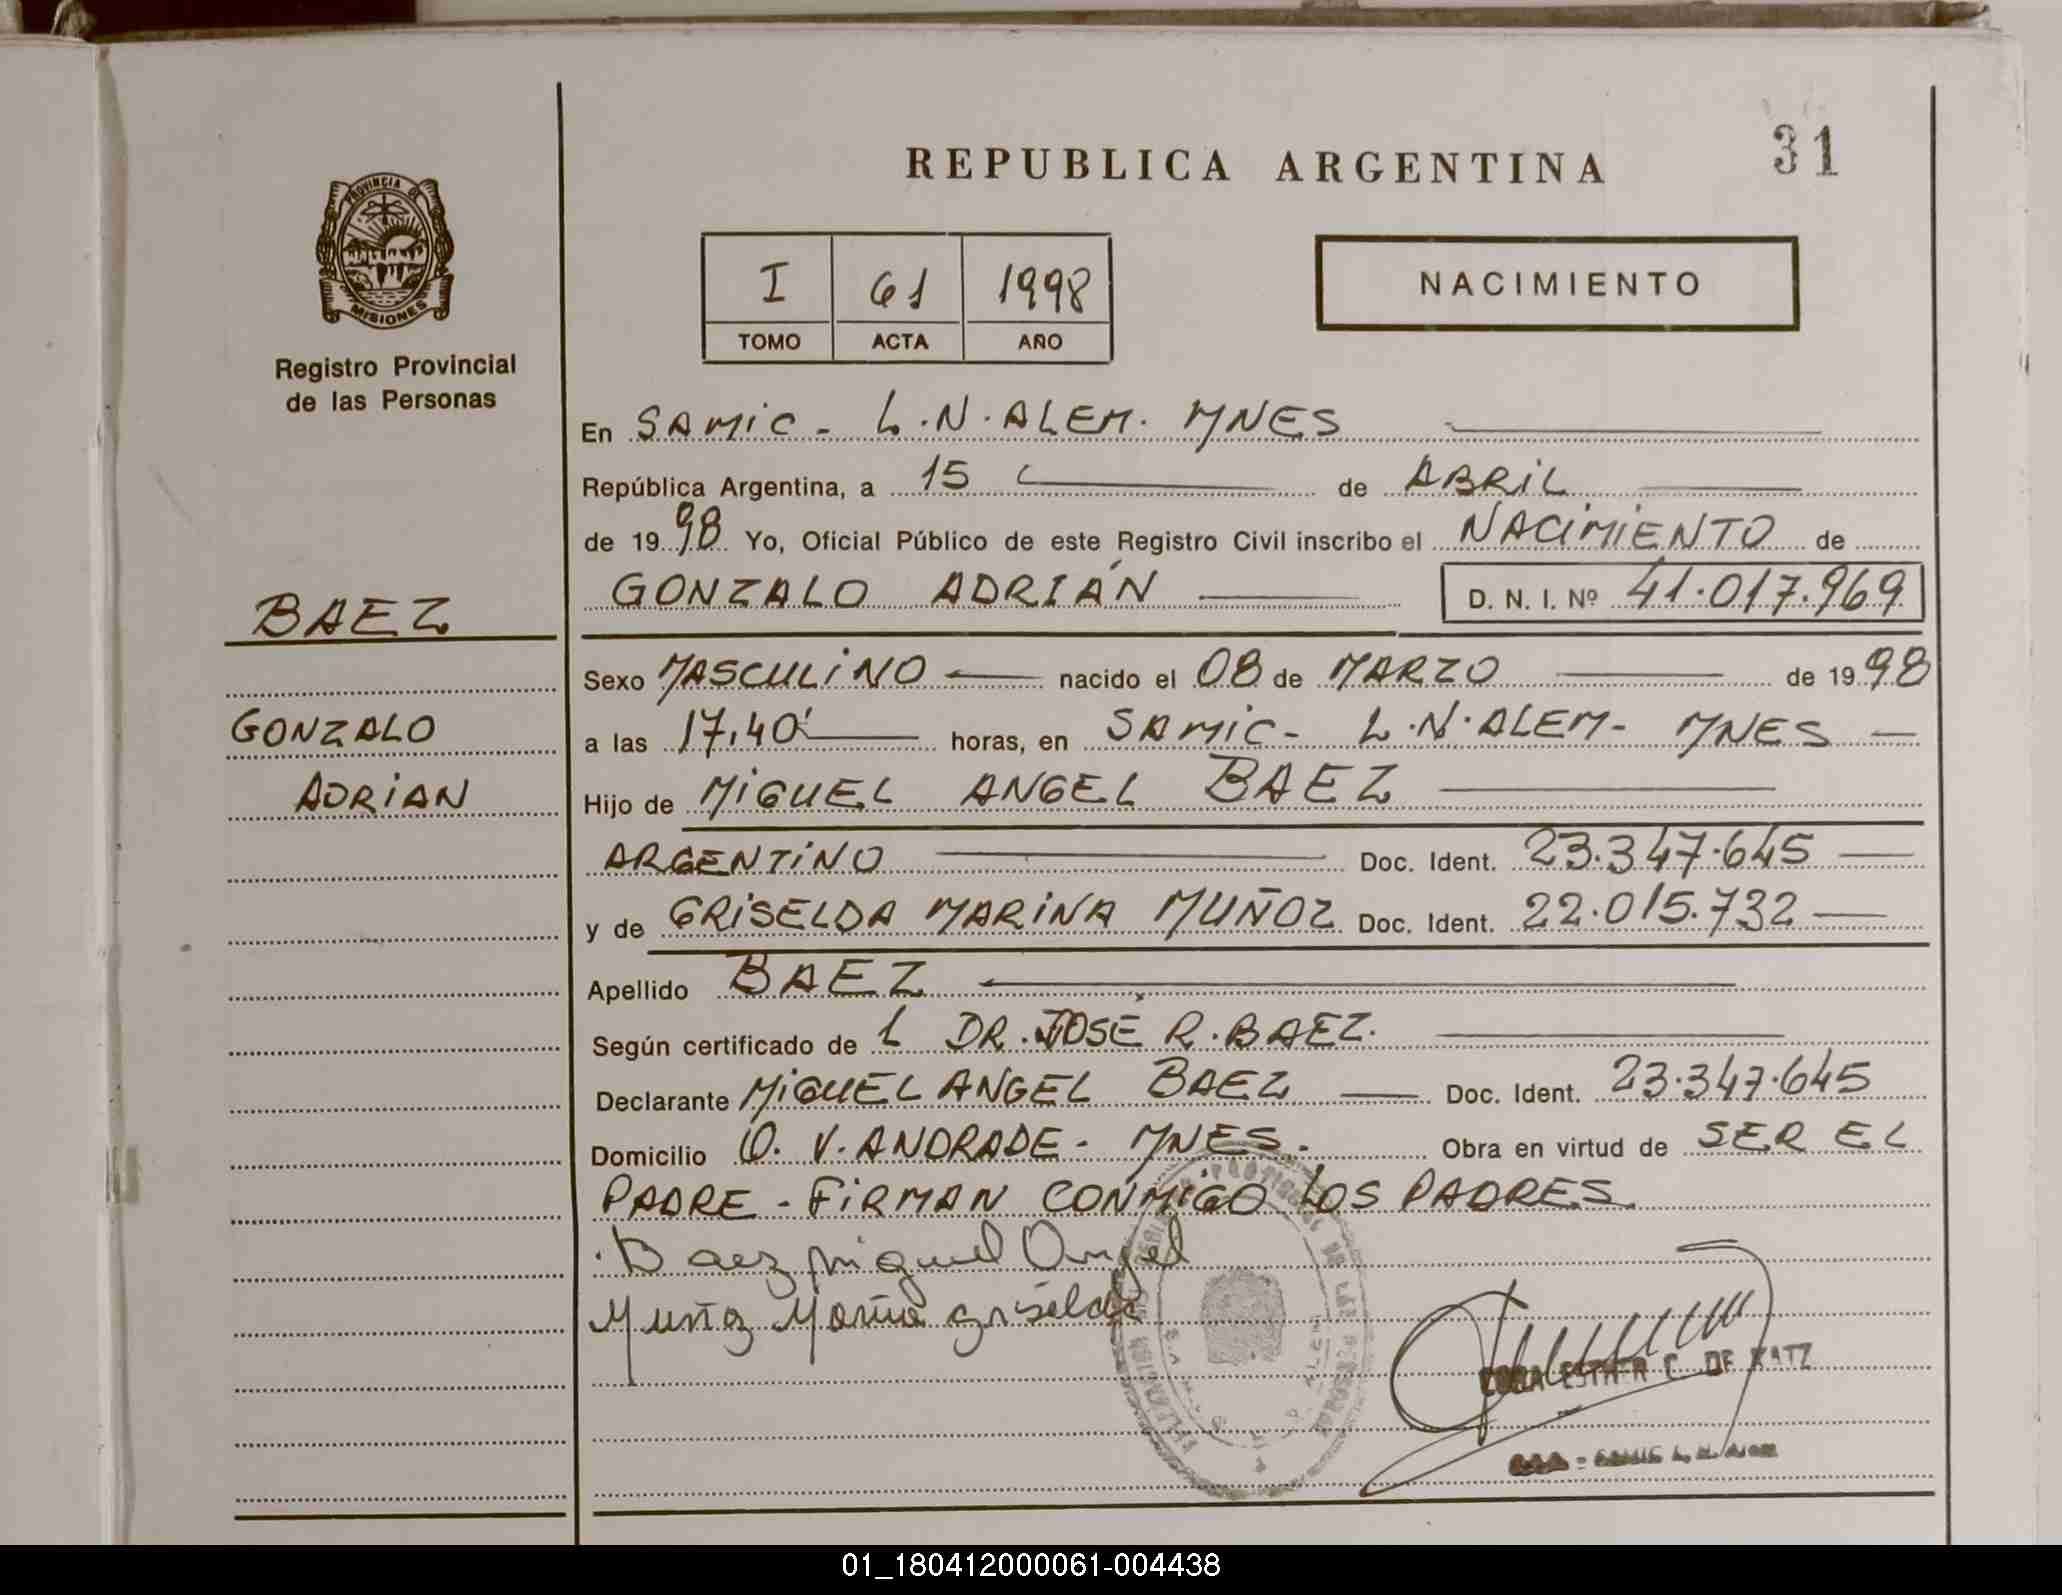 REPUBLICA ARGENTINA
31
PROVINCIA DE
MISIONES
Registro Provincial
de las Personas
I 61 1998
TOMO ACTA AÑO
NACIMIENTO
En SAMIC - L.N. ALEM. MNES
República Argentina, a 15 de ABRIL
de 1998 Yo, Oficial Público de este Registro Civil inscribo el NACIMIENTO de
GONZALO ADRIÁN D. N. I. Nº 41.017.969
BAEZ
GONZALO
ADRIAN
Sexo MASCULINO nacido el 08 de MARZO de 1998
a las 17,40' horas, en SAMIC - L.N. ALEM - MNES
Hijo de MIGUEL ANGEL BAEZ
ARGENTINO Doc. Ident. 23.347.645
y de GRISELDA MARINA MUÑOZ Doc. Ident. 22.015.732
Apellido BAEZ
Según certificado de L DR. JOSÉ R. BAEZ.
Declarante MIGUEL ANGEL BAEZ Doc. Ident. 23.347.645
Domicilio O. V. ANDRADE - MNES. Obra en virtud de SER EL
PADRE - FIRMAN CONMIGO LOS PADRES
Baez Miguel Angel
Muñoz Marina Griselda
ESTHER C. DE KATZ
01_180412000061-004438